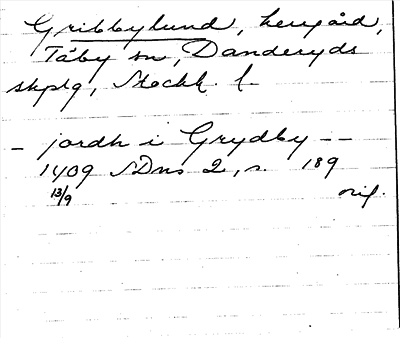 Gribbylund, herrgård,
Täby sn, Danderyds
skplg, Stockh. l.
- jordh i Grydby --
1409 SDns 2, s. 189
13/9 orig.